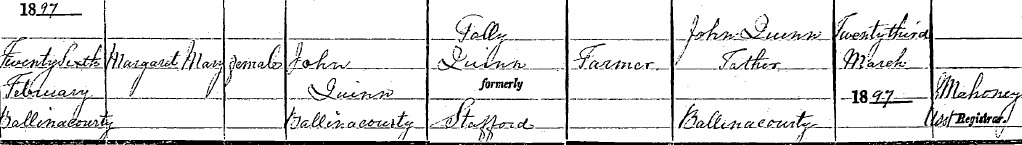 1897
Twenty Sixth
February
Ballinacourty
Margaret Mary
female
John
Quinn
Ballinacourty
Fally
Quinn
formerly
Stafford
Farmer.
John Quinn
Father
Ballinacourty
Twenty third
March
1897
Mahoney
Asst Registrar.